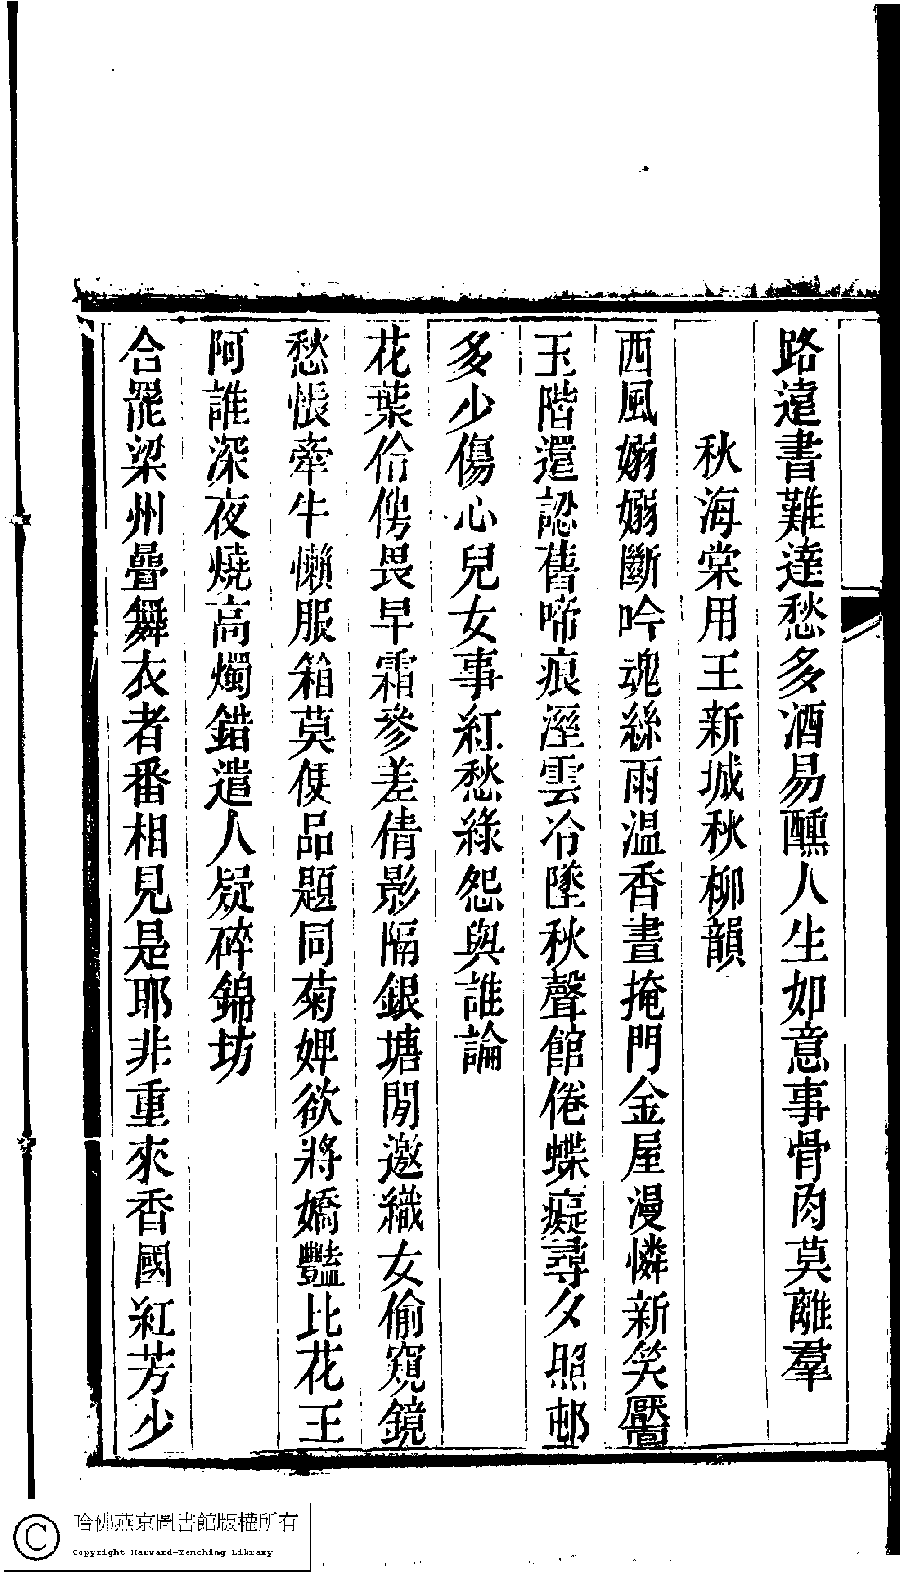 路遠書難達愁多酒易醺人生如意事骨肉莫離羣
秋海棠用王新城秋柳韻
西風嫋嫋斷吟魂絲雨温香晝掩門金屋漫憐新笑靨
玉階還認舊啼痕溼雲冷墜秋聲館倦蝶癡尋夕照邨
多少傷心兒女事紅愁綠怨與誰論
花葉伶俜畏早霜參差倩影隔銀塘閒邀織女偷窺鏡
愁悵牽牛懶服箱莫使品題同菊婢欲將嬌豔比花王
阿誰深夜燒高燭錯遣人疑碎錦坊
合罷梁州疊舞衣者番相見是耶非重來香國紅芳少
哈佛燕京圖書館版權所有
Copyright Harvard-Yenching Library